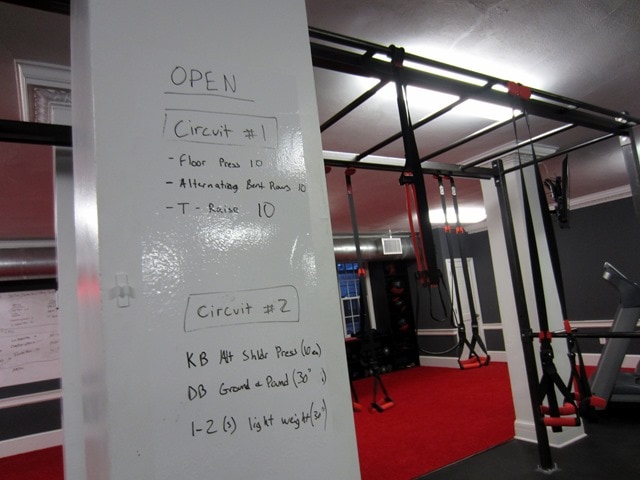 OPEN
Circuit #1
- Floor Press 10
- Alternating Bent Rows 10
- T-Raise 10
Circuit #2
KB Alt Shldr Press (10 ea)
DB Ground & Pound (30"
1-2 (s) light weight (30")